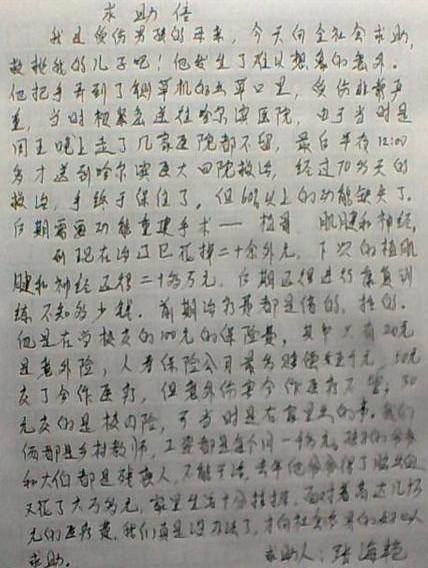 求助信
我是受伤男孩的母亲，今天向全社会求助，
救救我的儿子吧！他发生了难以想象的意外。
他把手弄到了铡草机的入草口里，受伤非常严
重，当时根紧急送往哈尔滨医院，由于当时是
用玉 上走了几家医院都不留，最后半夜12:00
多才送到哈尔滨医大四院救治，经过70多天的
救治，手终于保住了，但60%以上的功能缺失了。
后期需要功能重建手术——植骨、肌腱和神经。
到现在治疗已花掉二十余万元，下次的植肌
腱和神经还得二十多万元，后期还得进行康复训
练不知多少钱。前期治疗费都是借的，挂的。
他是在学校交的100元的保险费，其中只有20元
是意外险，人寿保险公司最多赔偿 千元，50元
交了合作医疗，但意外伤害合作医疗不管，30
元交的是校园险，可当时是在家里出的事。我们
俩都是乡村教师，工资都是每个月一千多元。孩子的爷爷
和大伯都是残疾人，不能干活，去年他爷爷得了脑出血
又花了六万多元，家里生活十分拮据，面对着高达几十万
元的医疗费，我们真是没办法了，才向社会各界的好心人
求助。
求助人：张海艳